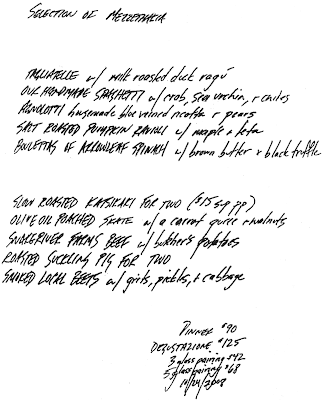 SELECTION OF MEZZETHALIA
TAGLIATELLE w/ milk roasted duck ragú
OUR HANDMADE SPAGHETTI w/ crab, sea urchin, + chiles
AGNOLOTTI housemade blue veined ricotta + pears
SALT ROASTED PUMPKIN RAVIOLI w/ maple + feta
BOULETTAS OF ARROWLEAF SPINACH w/ brown butter + black truffle
SLOW ROASTED KATSIKAKI FOR TWO ($15 sup pp)
OLIVE OIL POACHED SKATE w/ a carrot puree + walnuts
SNAKE RIVER FARMS BEEF w/ butcher's potatoes
ROASTED SUCKLING PIG FOR TWO
SMOKED LOCAL BEETS w/ grits, pickles, + cabbage
DINNER $90
DEGUSTAZIONE $125
3 glass pairing $42
5 glass pairing $68